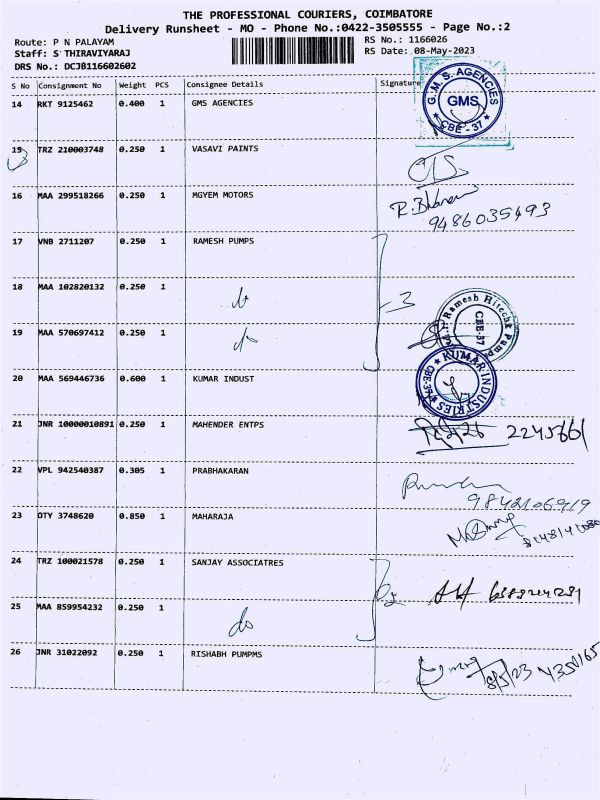 THE PROFESSIONAL COURIERS, COIMBATORE
Delivery Runsheet - MO - Phone No.:0422-3505555 - Page No.:2
Route: P N PALAYAM RS No.: 1166026
Staff: S THIRAVIYARAJ RS Date: 08-May-2023
DRS No.: DCJB116602602
S No Consignment No Weight PCS Consignee Details Signature
14 RKT 9125462 0.400 1 GMS AGENCIES
G.M.S. AGENCIES GMS CBE - 37
15 TRZ 210003748 0.250 1 VASAVI PAINTS
16 MAA 299518266 0.250 1 MGYEM MOTORS
9486035493
17 VNB 2711207 0.250 1 RAMESH PUMPS
18 MAA 102820132 0.250 1 do
3
19 MAA 570697412 0.250 1 do
Ramesh Hitech Pump CBE-37
20 MAA 569446736 0.600 1 KUMAR INDUST
KUMAR INDUSTRIES
21 JNR 10000010891 0.250 1 MAHENDER ENTPS
22 VPL 942540387 0.305 1 PRABHAKARAN
9842106919
23 OTY 3748620 0.850 1 MAHARAJA
24 TRZ 100021578 0.250 1 SANJAY ASSOCIATRES
25 MAA 859954232 0.250 1 do
26 JNR 31022092 0.250 1 RISHABH PUMPMS
8/5/23